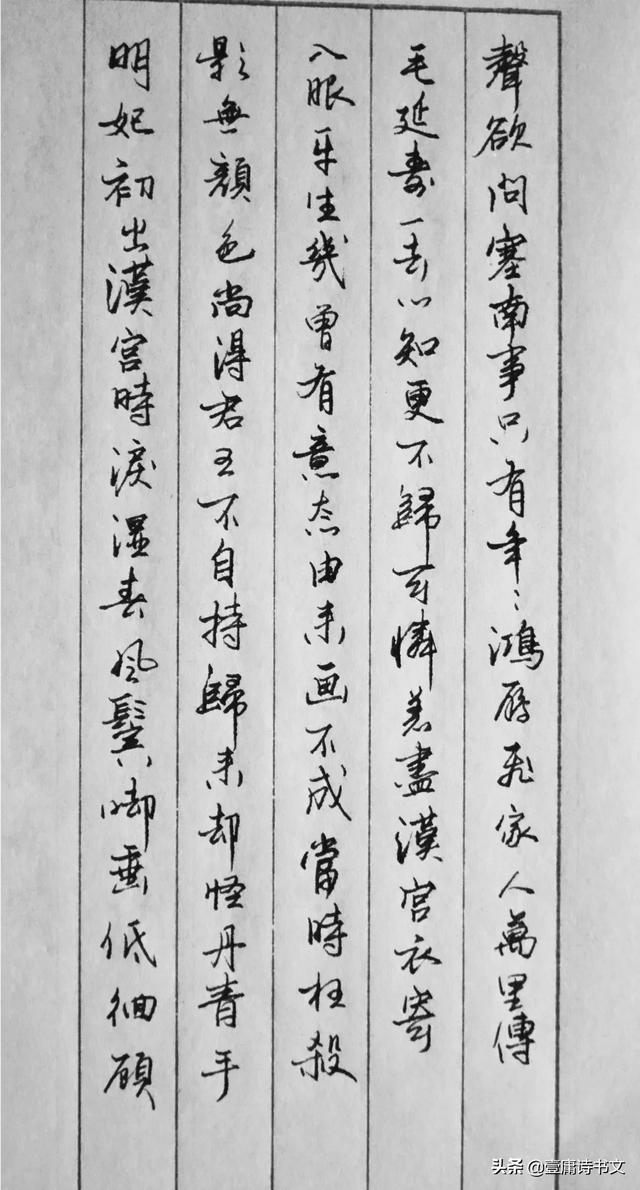 明妃初出漢宮時淚濕春風鬢脚垂低徊顧
影無顏色尚得君王不自持歸來却怪丹青手
入眼平生幾曾有意態由來画不成當時枉殺
毛延壽一去心知更不歸可憐着盡漢宮衣寄
聲欲問塞南事只有年〻鴻雁飛家人萬里傳
头条 @壹庸诗书文